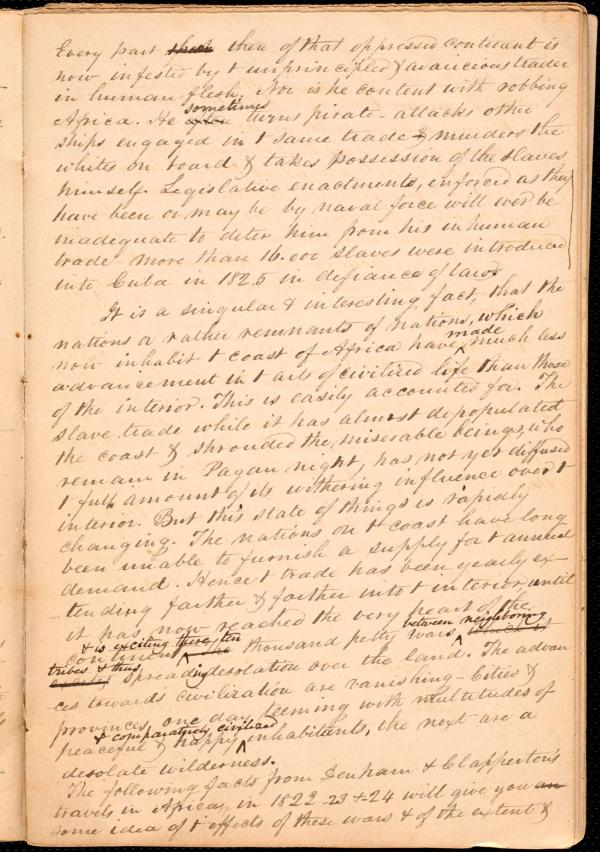 Every part then of that oppressed continent is
now infested by t unprincipled & avaricious trader
in human flesh. Nor is he content with robbing
sometimes
Africa. He often turns pirate - attacks other
ships engaged in t same trade & murders the
whites on board & takes possession of the slaves
himself. Legislative enactments, enforced as they
have been or may be by naval force will ever be
inadequate to deter him from his inhuman
trade more than 16.000 slaves were introduced
into Cuba in 1825 in defiance of laws
It is a singular & interesting fact, that the
nations or rather remnants of nations, which
made
now inhabit t coast of Africa have ^ much less
advancement in t arts of civilized life than those
of the interior. This is easily accounted for. The
slave trade while it has almost depopulated
the coast & shrouded the miserable beings, who
remain in Pagan night, has not yet diffused
t full amount of its withering influence over t
interior. But this state of things is rapidly
changing. The nations on t coast have long
been unable to furnish a supply for t annual
demand. Hence t trade has been yearly ex-
-tending farther & farther into t interior until
it has now reached the very heart of the
& is exciting there ten between neighboring
continent ^ the thousand petty wars ^
tribes & thus
spreading desolation over the land. The advan
ces towards civilization are vanishing - Cities &
provinces, one day teeming with multitudes of
& comparatively civilized
peaceful & happy ^ inhabitants, the next are a
desolate wilderness.
The following facts from Denham & Clapperton's
travels in Africa, in 1822 -23 + 24 will give you an
some idea of t effects of these wars & of the extent &